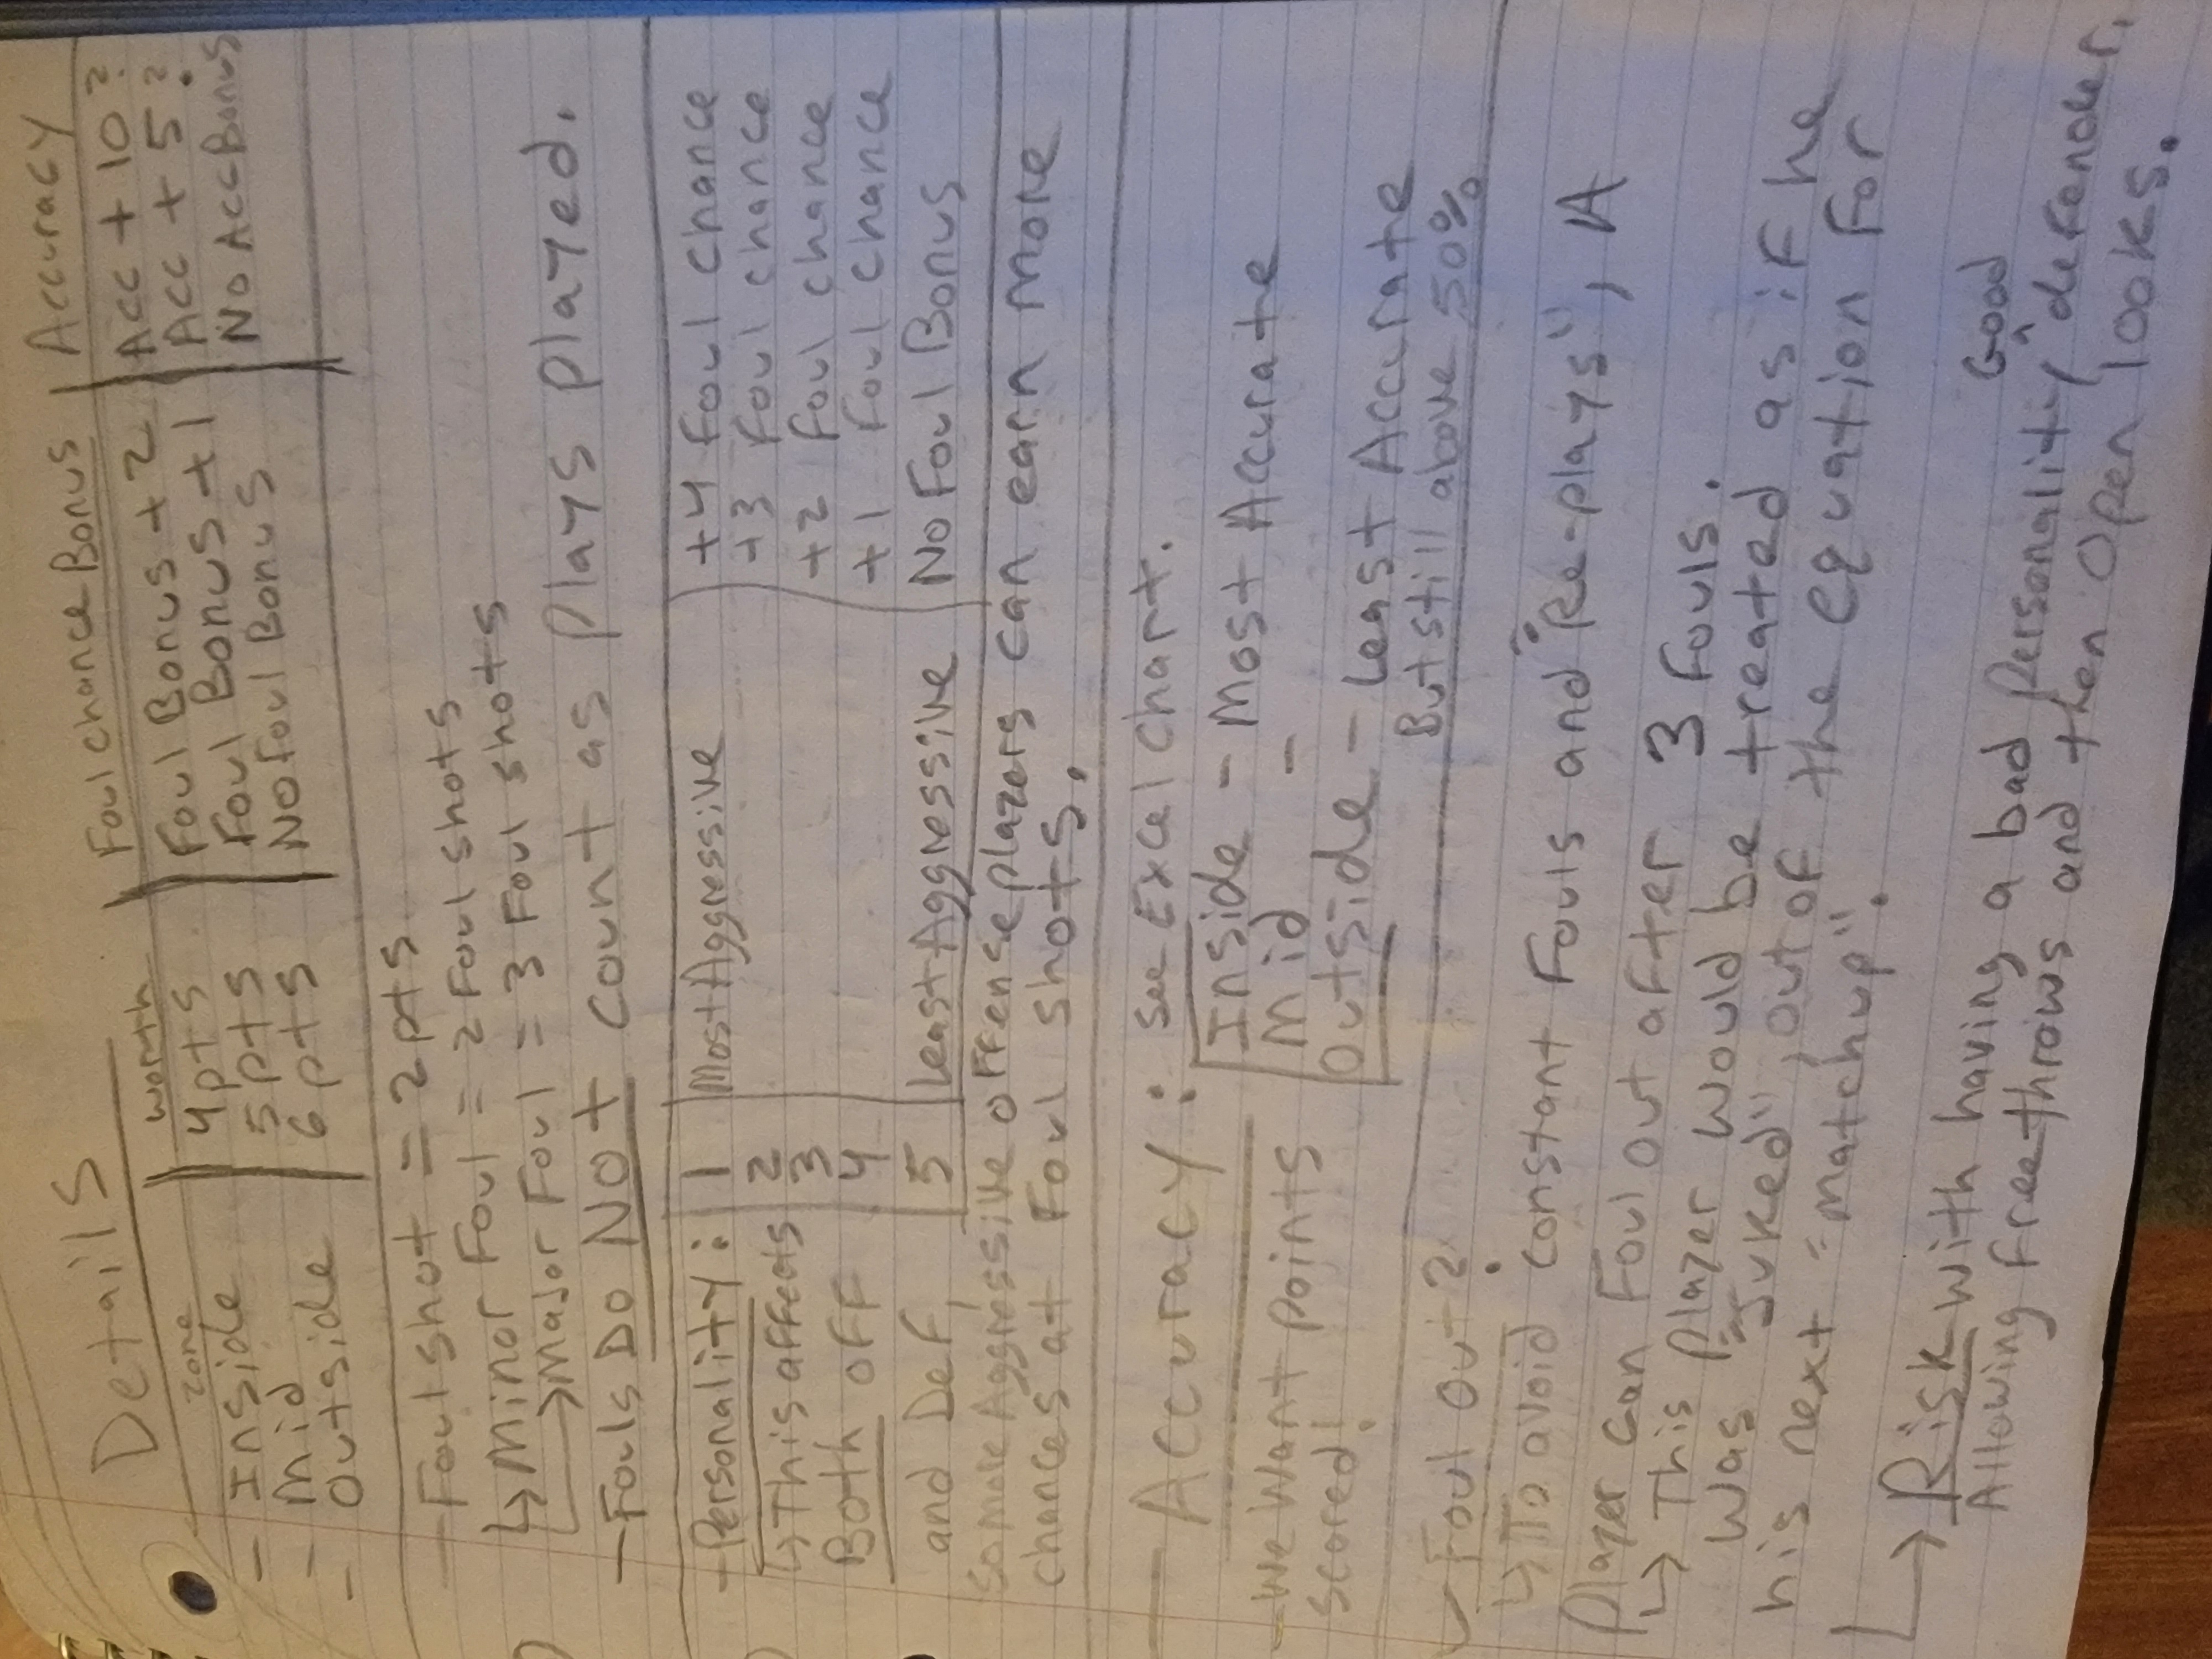 Details
Foul chance Bonus
Accuracy
zone
worth
- Inside 4pts Foul Bonus + 2 Acc + 10?
- Mid 5pts Foul Bonus +1 Acc + 5?
- Outside 6pts No Foul Bonus No Acc Bonus
- Foul shot = 2pts
↳ Minor Foul = 2 Foul shots
↳ Major Foul = 3 Foul shots
- Fouls Do NOt count as Plays Played.
- Personality: 1 Most Aggressive +4 Foul chance
↳ This affects 2 +3 Foul chance
3 +2 Foul chance
Both off 4 +1 Foul chance
and Def, 5 Least Aggressive No Foul Bonus
so more Aggressive offense players can earn more
chances at Foul shots.
- Accuracy: see Excel chart.
Inside - Most Accurate
- We Want points Mid -
scored! Outside - Least Accurate
But still above 50%
- Foul Out?
↳ To avoid constant Fouls and "Re-plays", A
Player can Foul out after 3 Fouls.
↳ This player would be treated as if he
was "Juked", out of the equation For
his next "matchup".
↳ Risk with having a bad personality Good defender.
Allowing Free throws and then Open looks.